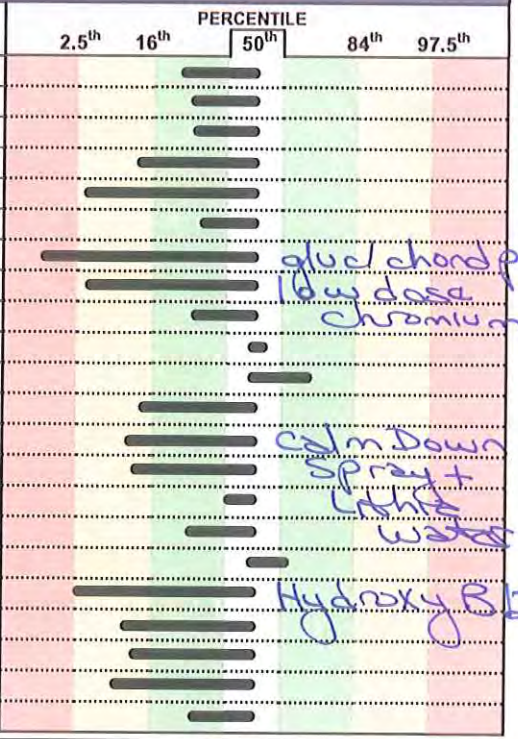 PERCENTILE
2.5th 16th 50th 84th 97.5th
low dose
chromium
Calm Down
Spray +
Lithia
water
Hydroxy B12